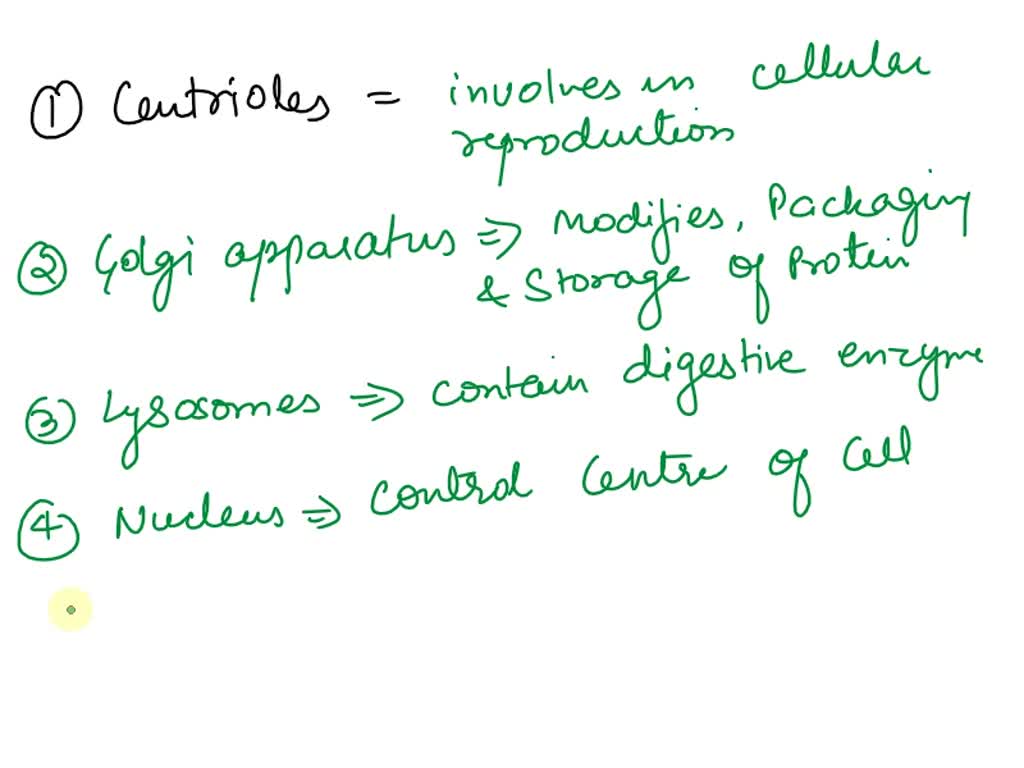 ① Centrioles = involves in cellular
reproduction
② Golgi apparatus ⇒ Modifies, Packaging
& Storage of Protein
③ Lysosomes ⇒ contain digestive enzyme
④ Nucleus ⇒ control Centre of Cell